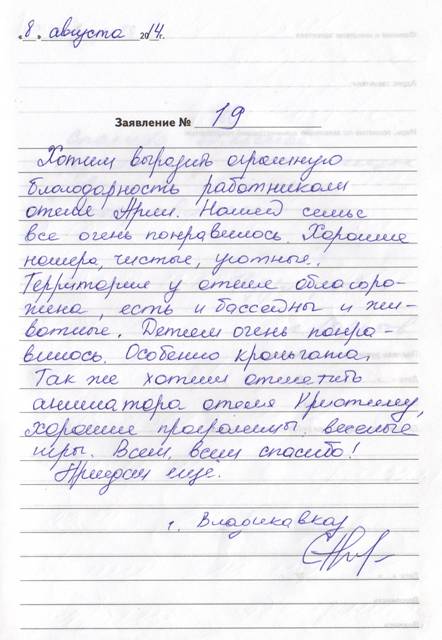 «8» августа 2014г.
Заявление № 19
Хотим выразить огромную
благодарность работникам
отеля Арли. Нашей семье
все очень понравилось. Хорошие
номера, чистые, уютные.
Территория у отеля облагоро-
жена, есть и бассейны и жи-
вотные. Детям очень понра-
вилось. Особенно крольчата.
Так же хотим отметить
аниматора отеля Кристину,
хорошие программы, веселые
игры. Всем, всем спасибо!
Приедем еще.
г. Владикавказ